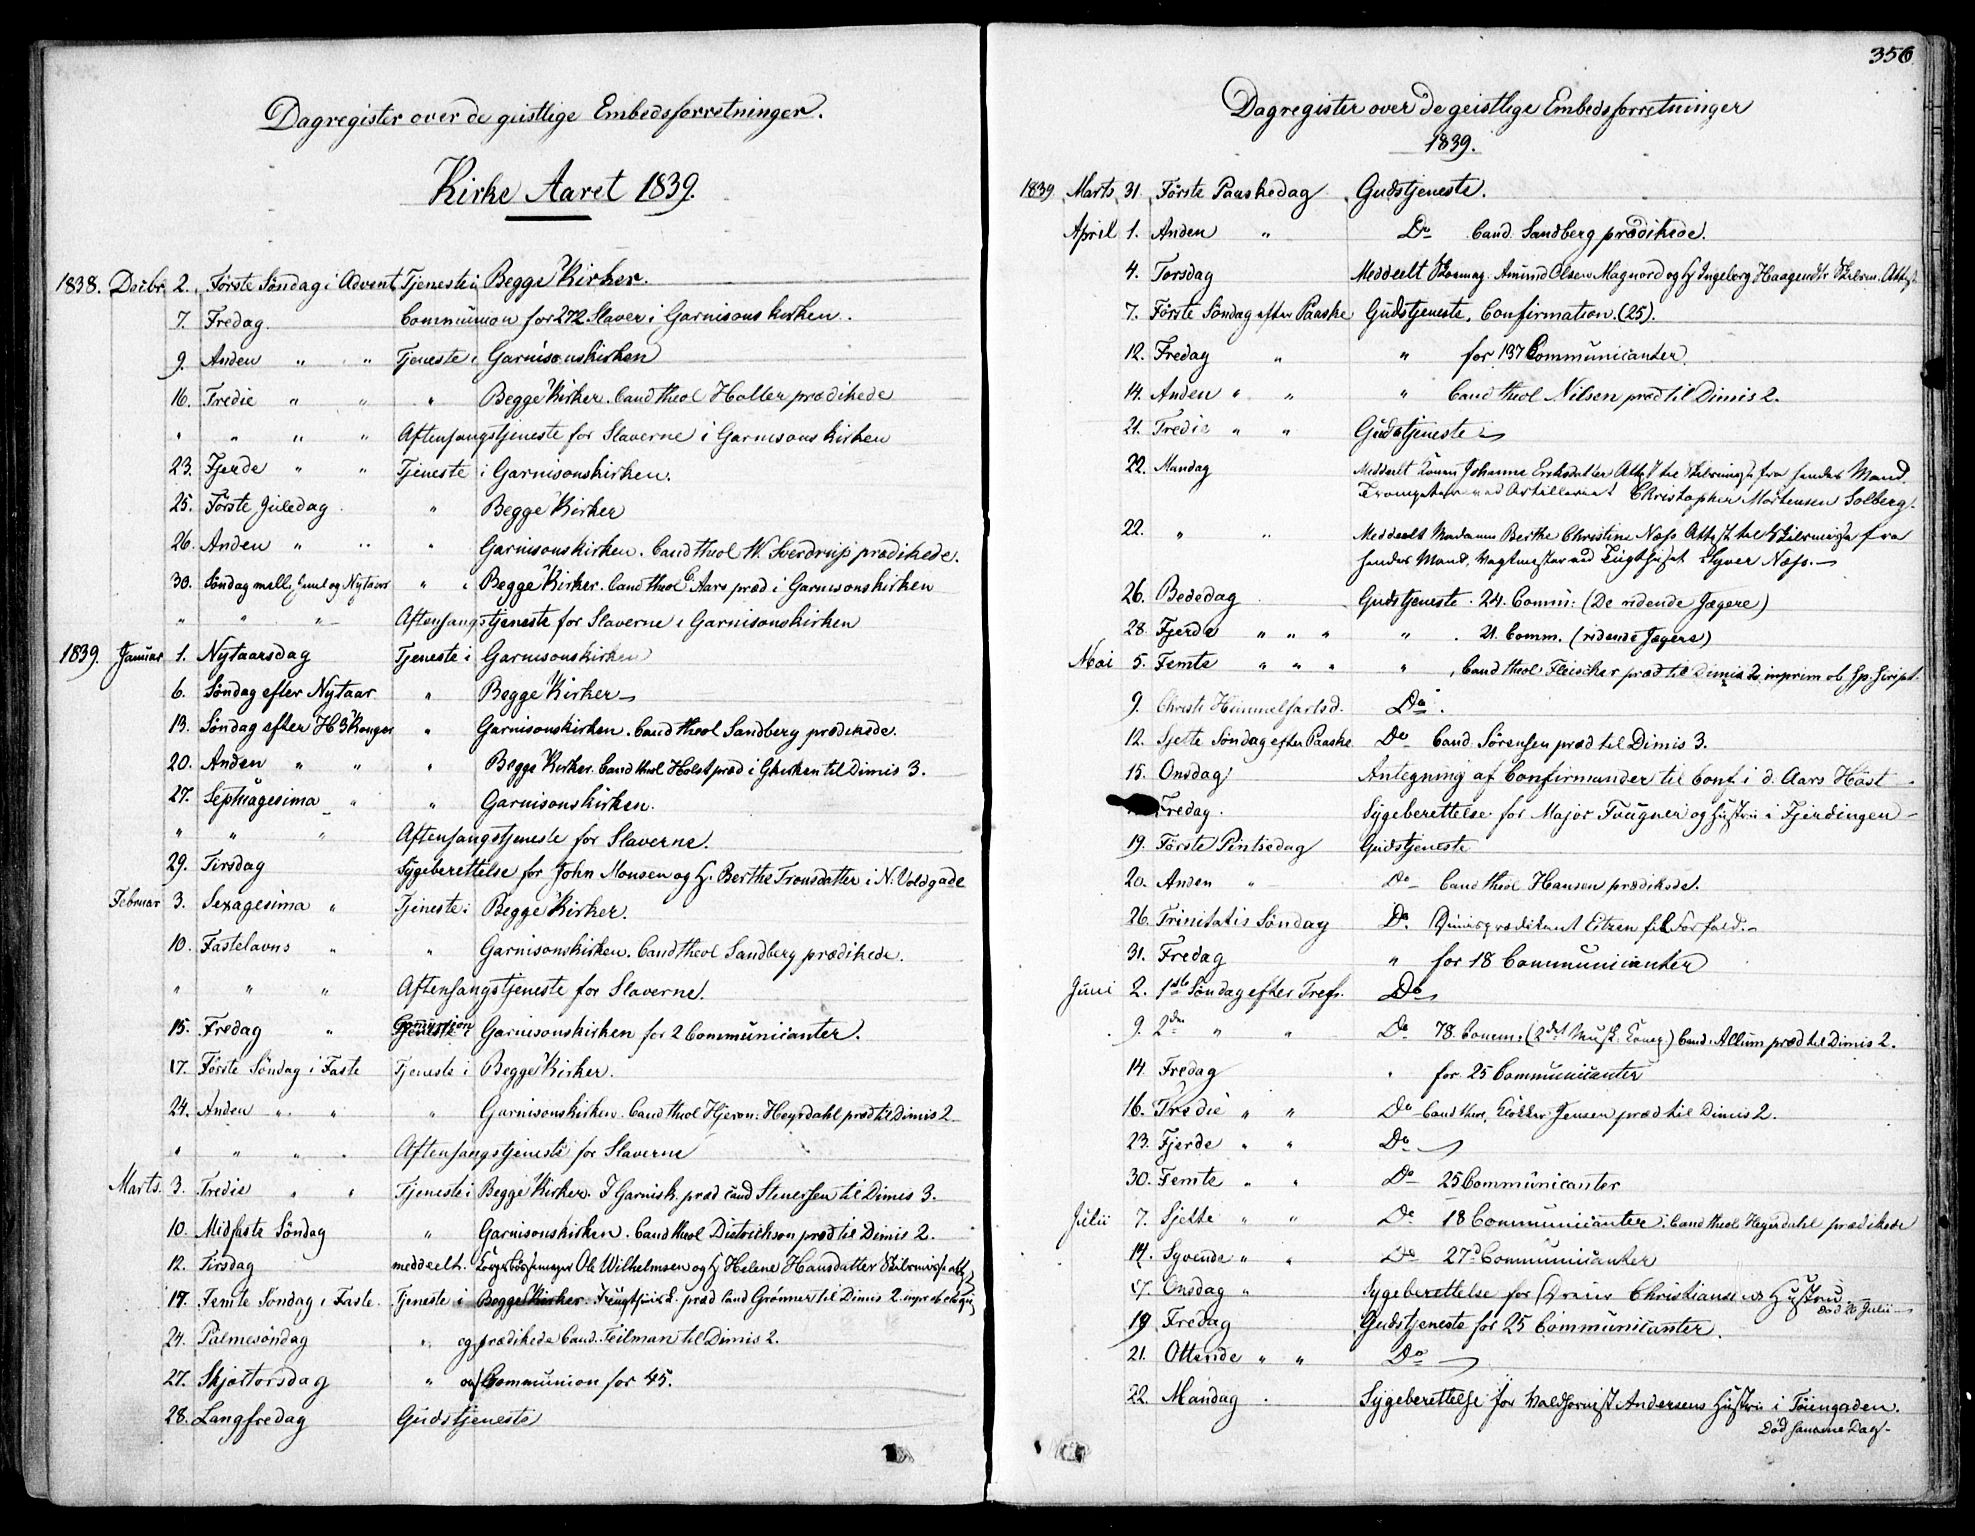 Dagregister over de geistlige Embedsforretninger.
Kirke Aaret 1839.
1838. Decbr. 2. Første Søndag i Advent Tjeneste i Begge Kirker.
7. Fredag. Communion for 272 Slaver i Garnisonskirken.
9. Anden " " Tjeneste i Garnisonskirken
16. Tredie " " " Begge Kirker. Cand theol Holler prædikede
" " " " Aftensangstjeneste for Slaverne i Garnisonskirken
23. Fjerde " " Tjeneste i Garnisonskirken.
25. Første Juledag " Begge Kirker
26. Anden " " " Garnisonskirken. Cand theol W. Sverdrup prædikede.
30. Søndag mell. Juul og Nytaar " i Begge Kirker. Cand theol C Aars præd i Garnisonskirken
" " " Aftensangstjeneste for Slaverne i Garnisonskirken
1839. Januar 1. Nytaarsdag Tjeneste i Garnisonskirken
6. Søndag efter Nytaar " Begge Kirker
13. Søndag efter H 3 Konger " Garnisonskirken. Cand theol Sandberg prædikede.
20. Anden " " " Begge Kirker. Cand theol Holst præd i Gkirken til Dimis 3.
27. Septuagesima " " Garnisonskirken.
" " " Aftensangstjeneste for Slaverne.
29. Tirsdag Sygeberettelse for John Monsen og H. Berthe Tronsdatter i N. Voldgade
Februar 3. Sexagesima " Tjeneste i Begge Kirker.
10. Fastelavns " " Garnisonskirken. Cand theol Sandberg prædikede.
" " " Aftensangstjeneste for Slaverne.
15. Fredag " Communion Garnisonskirken for 2 Communicanter.
17. Første Søndag i Faste Tjeneste i Begge Kirker.
24. Anden " " " Garnisonskirken. Cand theol Hjeron: Heyrdahl præd til Dimis 2
" " " " Aftensangstjeneste for Slaverne
Marts. 3. Tredie " " Tjeneste i Begge Kirker. I Garnisk. præd cand Stenersen til Dimis 3.
10. Midfaste Søndag " Garnisonskirken. Cand theol Dietrichson præd til Dimis 2.
12. Tirsdag meddeelt. Ole Wilhelmsen og H Helene Hansdatter Skilsmisse att
17. Femte Søndag i Faste. Tjeneste i Begge Kirker. præd Cand Grønner til Dimis 2
24. Palmesøndag " og prædikede Cand. Teilman til Dimis 2.
27. Skjærtorsdag " og Communion for 45.
28. Langfredag Gudstjeneste
356
Dagregister over de geistlige Embedsforretninger
1839.
1839 Marts 31. Første Paaskedag Gudstjeneste.
April 1. Anden " Do Cand. Sandberg prædikede.
4. Torsdag Meddeelt Amund Olsen Magnord og H Ingeborg Haagensdtr Skilsm. Attest
7. Første Søndag efter Paaske Gudstjeneste, Confirmation. (25).
12. Fredag " " for 137 Communicanter.
14. Anden " " " Cand theol Nilsen præd til Dimis 2.
21. Tredie " " Gudstjeneste
22. Mandag Meddeelt Konen Johanne Eriksdatter Attest til Skilsmisse fra hendes Mand,
Trompeter ved Artilleriet Christopher Mortensen Solberg.
22. " " Meddeelt Madame Berthe Christine Næss Attest til Skilsmisse fra
hendes Mand, Vagtmester ved Tugthuset Elyver Næss.
26. Bededag Gudstjeneste. 24. Comm: (De ridende Jægere)
28. Fjerde " " " " 21. Comm. (ridende Jægere)
Mai 5. Femte " " " " Cand theol Fleischer præd til Dimis 2
9. Christi Himmelfartsd. Do.
12. Sjette Søndag efter Paaske Do Cand. Sørensen præd til Dimis 3.
15. Onsdag Antegning af Confirmander til Conf. i d. Aars Høst
Fredag. Sygeberettelse for Major Fougner og Hustru i Fjerdingen
19. Første Pintsedag Gudstjeneste
20. Anden " Do Cand theol Hansen prædikede.
26. Trinitatis Søndag Do. Eitzen Forfald.
31. Fredag " for 18 Communicanter
Juni 2. 1ste Søndag efter Tref. Do
9. 2den " " Do 78 Comm. Cand. Allum præd til Dimis 2.
14. Fredag " for 25 Communicanter
16. Tredie " " Do Cand theol, Jensen præd til Dimis 2.
23. Fjerde " " Do
30. Femte " " Do 25 Communicanter
Julii 7. Sjette " " Do 18 Communicanter. Cand theol Heyerdahl prædikede
14. Syvende " " Do 27 Communicanter
17. Onsdag " Sygeberettelse for Christiansens Hustru
død 26 Julii
19 Fredag Gudstjeneste for 25 Communicanter.
21. Ottende " " Do
22. Mandag . Sygeberettelse for Andersens Hustru i Töiengaden.
Död samme Dag